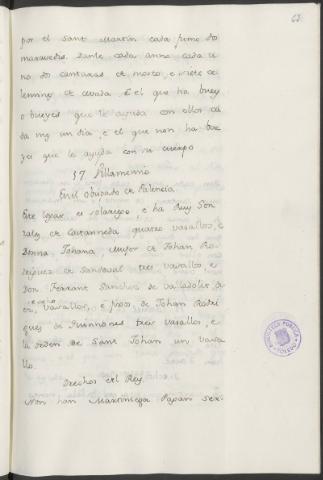 63
por el Sant Martin cada fumo dos
maravedis. Danle cada anno cada u
no dos cantaras de mosto, e siete ce
lemines de cevada. E el que ha buey
o bueyes que le ayuda con ellos ca
da mes un dia, e el que non ha bue
yes que le ayuda con su cuerpo
57 Villamenio
En el obispado de Palencia
Este logar es solariego, e ha Ruy Gon
zalez de Castanneda quatro vasallos, e
Donna Johana, muger de Johan Ro
driguez de Sandoval tres vasallos e
Don Ferrant Sanches de Valladolit, di
es, e ocho vasallos, e fijos de Johan Rodri
gues de tres vasallos, e
la orden de Sant Johan un vasa
llo.
Derechos del Rey
Non han Martiniega Pagan ser-
BIBLIOTECA PUBLICA
TOLEDO